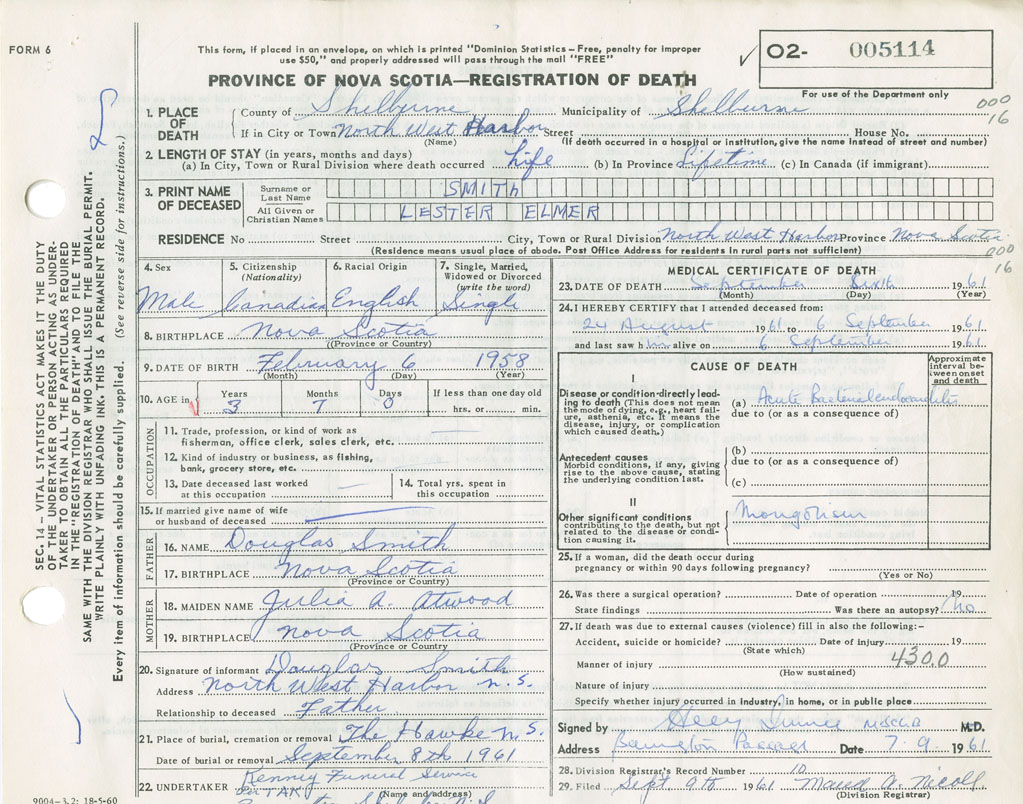 FORM 6
This form, if placed in an envelope, on which is printed "Dominion Statistics – Free, penalty for improper
use $50," and properly addressed will pass through the mail "FREE"
PROVINCE OF NOVA SCOTIA—REGISTRATION OF DEATH
O2- 005114
For use of the Department only
000
16
SEC. 14 – VITAL STATISTICS ACT MAKES IT THE DUTY
OF THE UNDERTAKER OR PERSON ACTING AS UNDER-
TAKER TO OBTAIN ALL THE PARTICULARS REQUIRED
IN THE "REGISTRATION OF DEATH" AND TO FILE THE
SAME WITH THE DIVISION REGISTRAR WHO SHALL ISSUE THE BURIAL PERMIT.
WRITE PLAINLY WITH UNFADING INK. THIS IS A PERMANENT RECORD.
Every item of information should be carefully supplied. (See reverse side for instructions.)
1. PLACE OF DEATH
County of Shelburne Municipality of Shelburne
If in City or Town North West Harbor Street House No.
(Name) (If death occurred in a hospital or institution, give the name instead of street and number)
2. LENGTH OF STAY (in years, months and days)
(a) In City, Town or Rural Division where death occurred Life (b) In Province Lifetime (c) In Canada (if immigrant)
3. PRINT NAME OF DECEASED
Surname or Last Name SMITh
All Given or Christian Names LESTER ELMER
RESIDENCE No Street City, Town or Rural Division North West Harbor Province Nova Scotia
(Residence means usual place of abode. Post Office Address for residents in rural parts not sufficient)
000
16
4. Sex
Male
5. Citizenship (Nationality)
Canadian
6. Racial Origin
English
7. Single, Married, Widowed or Divorced (write the word)
Single
8. BIRTHPLACE Nova Scotia
(Province or Country)
9. DATE OF BIRTH February 6 1958
(Month) (Day) (Year)
10. AGE in Years Months Days If less than one day old
3 7 0 hrs. or min.
OCCUPATION
11. Trade, profession, or kind of work as
fisherman, office clerk, sales clerk, etc.
12. Kind of industry or business, as fishing,
bank, grocery store, etc.
13. Date deceased last worked
at this occupation
14. Total yrs. spent in
this occupation
15. If married give name of wife
or husband of deceased
FATHER
16. NAME Douglas Smith
17. BIRTHPLACE Nova Scotia
(Province or Country)
MOTHER
18. MAIDEN NAME Julia A. Atwood
19. BIRTHPLACE Nova Scotia
(Province or Country
20. Signature of informant Douglas Smith
Address North West Harbor N.S.
Relationship to deceased Father
21. Place of burial, cremation or removal The Hawke N.S.
Date of burial or removal September 8th 1961
22. UNDERTAKER Kenney Funeral Service
Per TAK
(Name and address)
9004-3.2: 18-5-60
MEDICAL CERTIFICATE OF DEATH
23. DATE OF DEATH September Sixth 1961
(Month) (Day) (Year)
24. I HEREBY CERTIFY that I attended deceased from:
24 August 1961 to 6 September 1961
and last saw him alive on 6 September 1961
CAUSE OF DEATH
Approximate interval be- tween onset and death
I
Disease or condition directly lead-
ing to death (This does not mean
the mode of dying, e.g., heart fail-
ure, asthenia, etc. It means the
disease, injury, or complication
which caused death.)
(a) Acute Bacterial endocarditis
due to (or as a consequence of)
Antecedent causes
Morbid conditions, if any, giving
rise to the above cause, stating
the underlying condition last.
(b)
due to (or as a consequence of)
(c)
II
Other significant conditions
contributing to the death, but not
related to the disease or condi-
tion causing it.
Mongolism
25. If a woman, did the death occur during
pregnancy or within 90 days following pregnancy?
(Yes or No)
26. Was there a surgical operation? Date of operation 19
State findings Was there an autopsy? No
27. If death was due to external causes (violence) fill in also the following:-
Accident, suicide or homicide? Date of injury 19
(State which)
Manner of injury 430.0
(How sustained)
Nature of injury
Specify whether injury occurred in industry, in home, or in public place
Signed by M.D.
Address Barrington Passage Date 7. 9. 1961
28. Division Registrar's Record Number 10
29. Filed Sept 9th 1961 Maud A. Nicoll
(Division Registrar)